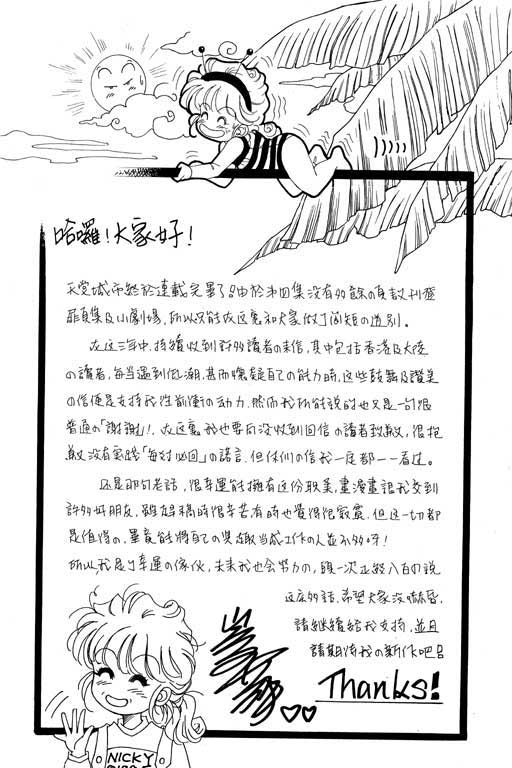 哈囉！大家好！
天堂城市終於連載完畢了。由於第四集沒有多餘的頁數刊登
扉頁集及小劇場，所以只能在這裏和大家做丁簡短的道別。
在這三年中，持續收到許多讀者的來信，其中包括香港及大陸
的讀者，每当遇到低潮，甚而懷疑自己の能力時，這些鼓舞及讚美
の信便是支持我往前衝の动力。然而我所能說的也又是一句很
普通の「謝謝」！在這裏我也要向沒收到回信の讀者致歉，很抱
歉沒有實踐「每封必回」の諾言，但你們の信我一定都一一看过。
還是那句老話，很幸運能擁有這份職業，畫漫畫讓我交到
許多好朋友，雖趕稿時很辛苦有時也覺得很寂寞，但這一切都
是值得の，畢竟能將自己の興趣当成工作の人並不多呀！
所以，我是丁幸運の傢伙，未來我也会努力の，頭一次正經八百の說
這麼多話，希望大家沒嚇昏。
請繼續給我支持，並且
請期待我の新作吧！
Thanks!
NICKY